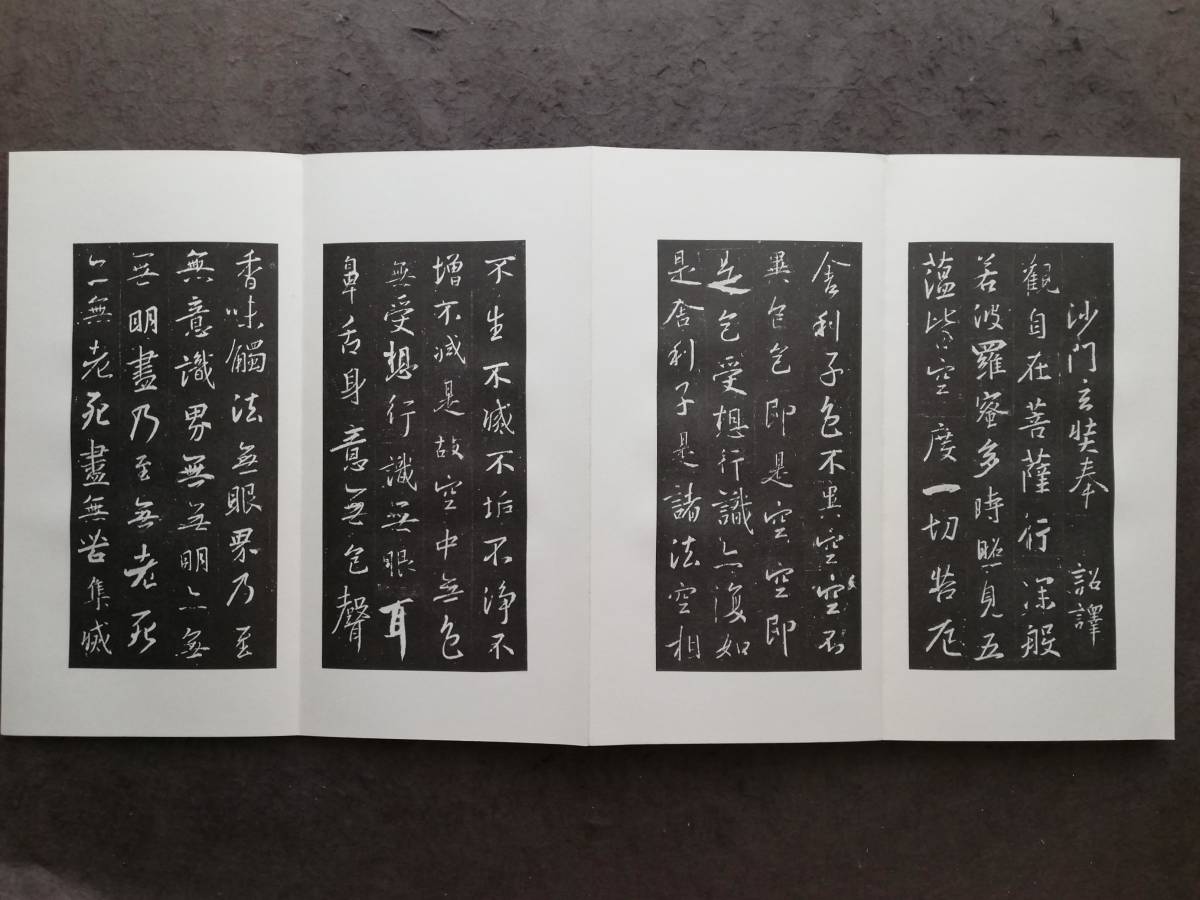 沙門玄奘奉 詔譯
觀自在菩薩行深般
若波羅蜜多時照見五
蘊皆空度一切苦厄
舍利子色不異空空不
異色色即是空空即
是色受想行識亦復如
是舍利子是諸法空相
不生不滅不垢不淨不
增不減是故空中無色
無受想行識無眼耳
鼻舌身意無色聲
香味觸法無眼界乃至
無意識界無無明亦無
無明盡乃至無老死
亦無老死盡無苦集滅